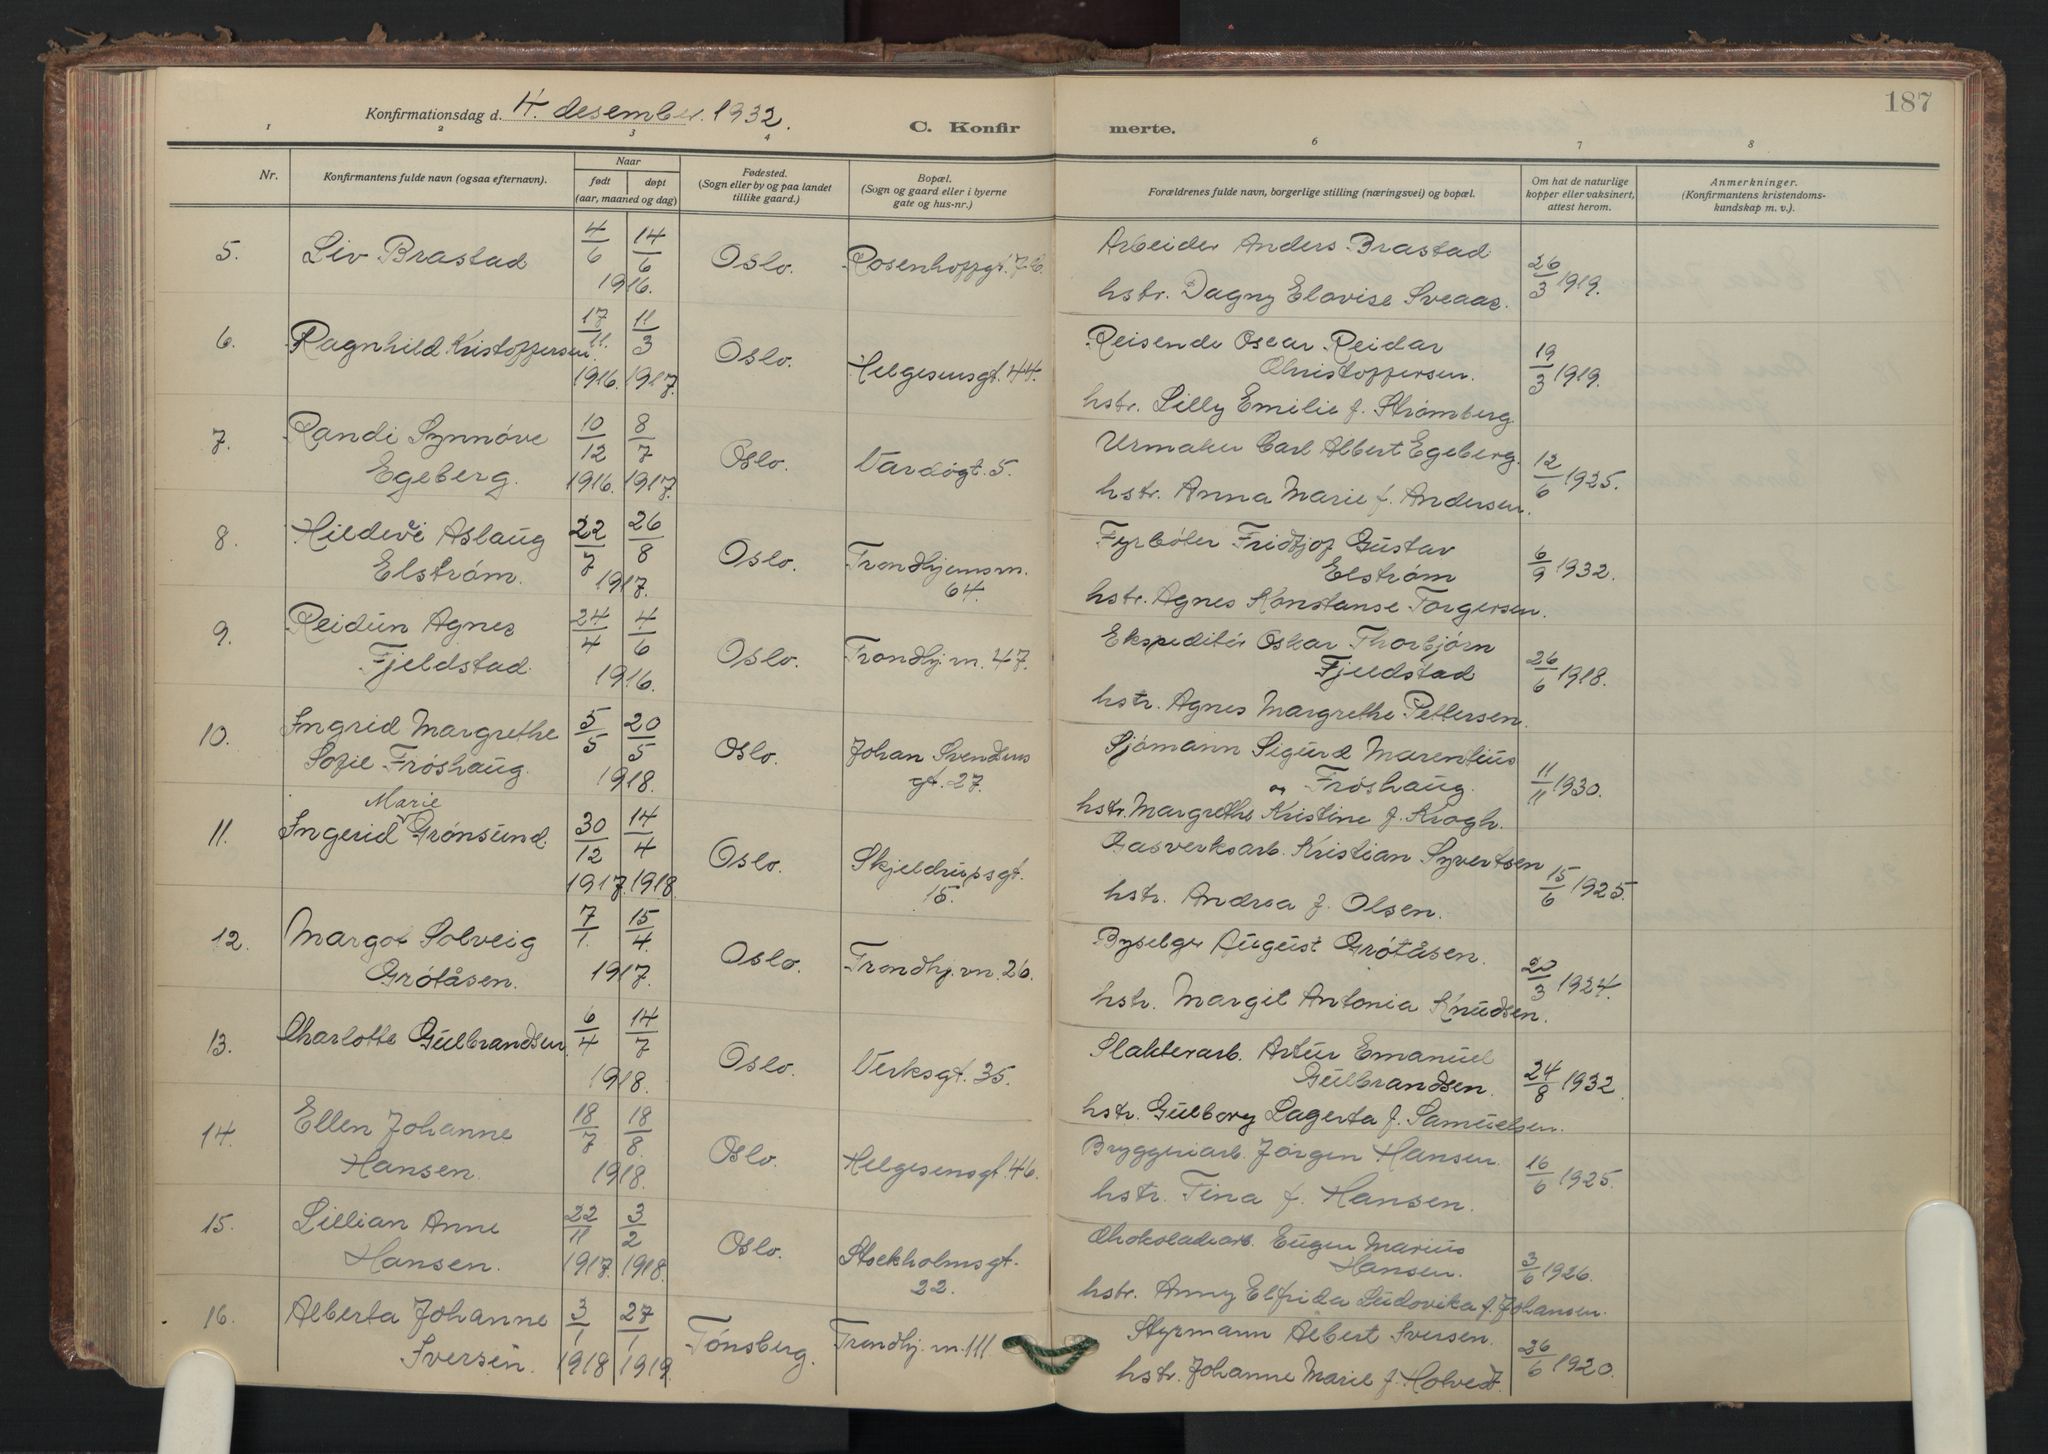 187
Konfirmationsdag d. 4. desember 1932.
C. Konfirmerte.
1 2 3 4 6 7 8
Nr.
Konfirmantens fulde navn (ogsaa efternavn).
Naar
født døpt
(aar, maaned og dag)
Fødested.
(Sogn eller by og paa landet
tillike gaard.)
Bopæl.
(Sogn og gaard eller i byerne
gate og hus-nr.)
Forældrenes fulde navn, borgerlige stilling (næringsvei) og bopæl.
Om hat de naturlige
kopper eller vaksinert,
attest herom.
Anmerkninger.
(Konfirmantens kristendoms-
kundskap m. v.).
5. Liv Brastad 4/6 14/6 1916. Oslo. Rosenhoffgt. 7 b. Arbeider Anders Brastad
hstr. Dagny Elovise Sveaas. 26/3 1919.
6. Ragnhild Kristoffersen. 17/11. 1916. 11/3 1917. Oslo. Helgesensgt. 44. Reisende Oscar Reidar
Christoffersen.
hstr. Lilly Emilie f. Strømberg. 19/3 1919.
7. Randi Synnøve
Egeberg. 10/12 1916. 8/7 1917. Oslo. Vardøgt. 5. Urmaker Carl Albert Egeberg.
hstr. Anna Marie f. Andersen. 12/6 1925.
8. Hildevi Aslaug
Elstrøm. 22/7 26/8 1917. Oslo. Trondhjemsvn.
64. Fyrbøter Fridtjof Gustav
Elstrøm
hstr. Agnes Konstanse Torgersen. 6/9 1932.
9. Reidun Agnes
Fjeldstad. 24/4 4/6 1916. Oslo. Trondhj. vn. 47. Ekspeditør Oskar Thorbjørn
Fjeldstad
hstr. Agnes Margrethe Pettersen. 26/6 1918.
10. Ingrid Margrethe
Sofie Frøshaug. 5/5 20/5 1918. Oslo. Johan Svendsens
gt. 27. Sjømann Sigurd Marentius
og Frøshaug.
hstr. Margrethe Kristine f. Krogh. 11/11 1930.
11. Ingerid Marie Grønsund. 30/12 1917. 14/4 1918. Oslo. Skjeldrupsgt.
15. Gasverksarb. Kristian Syvertsen
hstr. Andrea f. Olsen. 15/6 1925.
12. Margot Solveig
Grøtåsen. 7/1. 15/4. 1917. Oslo. Trondhj. vn. 26. Byselger August Grøtåsen.
hstr. Margit Antonia Knudsen. 20/3 1924.
13. Charlotte Gulbrandsen. 6/4 14/7 1918. Oslo. Verksgt. 35. Slakterarb. Artur Emanuel
Gulbrandsen.
hstr. Gulborg Lagerta f. Samuelsen. 24/8 1932.
14. Ellen Johanne
Hansen. 18/7 18/8. 1918. Oslo. Helgesensgt. 46. Bryggeriarb. Jørgen Hansen.
hstr. Tina f. Hansen. 16/6 1925.
15. Lillian Anne
Hansen. 22/11 1917. 3/2 1918. Oslo. Stockholmsgt.
22. Chokoladearb. Eugen Marius
Hansen.
hstr. Anny Elfrida Ludovika f. Johansen. 3/6 1926.
16. Alberta Johanne
Iversen. 3/1 1918 27/1 1919. Tønsberg. Trondhj. vn. 111. Styrmann Albert Iversen.
hstr. Johanne Marie f. Holvedt. 26/6 1920.